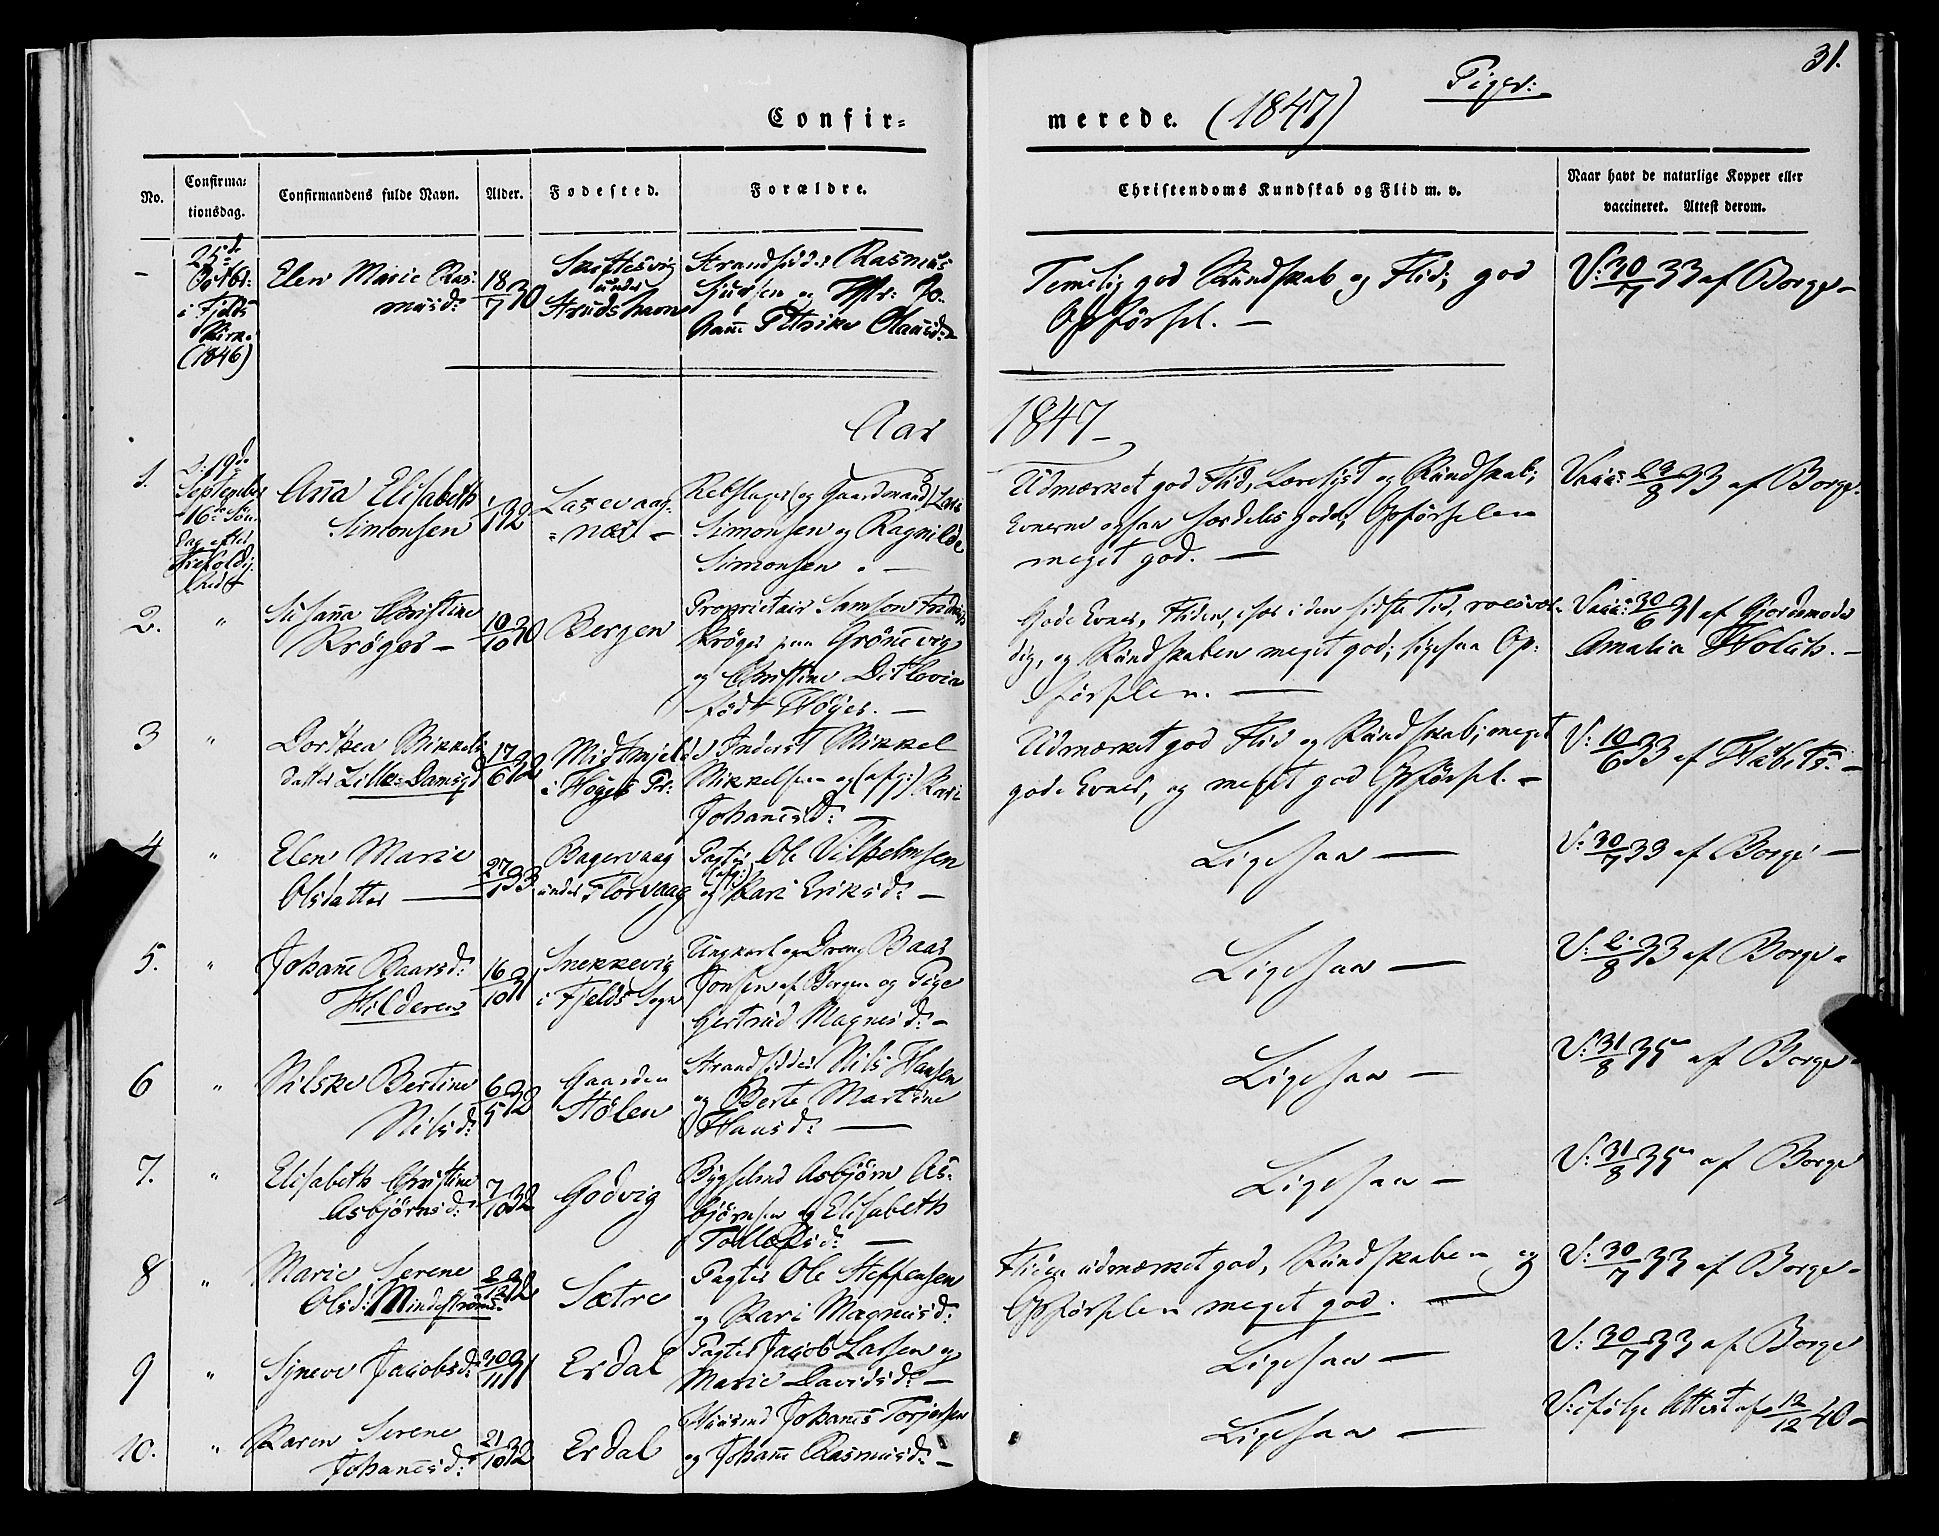 31.
Piger:
Confir=
merede. (1847)
No.
Confirma=
tionsdag.
Confirmandens fulde Navn.
Alder.
Fødested.
Forældre.
Christendoms Kundskab og Flid m. v.
Naar havt de naturlige Kopper eller
vaccineret. Attest derom.
25d
Octbr:
i Fjelds
Kirke
(1846)
Elen Marie Ras-
musd:
18/7 30
under
Strudshavn
Strandsidder Rasmus
Sjursen og Hstr: Jo-
hane Petrike Olausd:
Temelig god Kundskab og Flid; god
Opførsel. —
V: 30/7 33 af Borge —
Aar
1847 —
1.
D: 19de
September
16de Søn-
dag efter
Trefoldig-
hed
Anna Elisabeth
Simonsen
Laxevaag-
= næs —
Rebslager (og Gaardmand) Lars
Simonsen og Ragnilde
Simonsen. —
Udmærket god Flid, Lærelyst og Kundskab;
Evnerne ogsaa særdeles gode; Opførselen
meget god. —
af Borge.
2.
"
Susanna Christine
Krøger —
10/10 30
Bergen
Proprietair Samson
Krøger paa Grønnevig
og Christine Ditlevia
født Høyer. —
Gode Evner, Fliden, især i den sidste Tid, roesvær-
dig, og Kundskaben meget god; ligesaa Op-
førselen. —
Vacc: 30/6 31 af Gjordemoder
Amalia
3
"
Dorthea Mikkels
datter Lille-Damsgd
17/6 32
Midtmjelde
i Hougs Pr:
Inderst Mikkel
Mikkelsen og (afg:) Kari
Johannesd: —
Udmærket god Flid og Kundskab; meget
gode Evner, og meget god Opførsel. —
V: 10/6 33 af
4
"
Elen Marie
Olsdatter —
27/1 33
Bagervaag
under Florvaag
Pagter Ole Vilhelmsen
og (afg:) Kari Eriksd: —
Ligesaa —
V: 30/7 33 af Borge —
5.
"
Johanne Baarsd:
Hilderen
16/10 31
Snekkevig
i Fjelds Sogn
Ungkarl og Dreng Baar
Jonsen af Bergen og Pige
Gertrud Magnesd: —
Ligesaa —
V: 2/8 33 af Borge —
6
"
Nilske Bertine
Nilsd:
6/5 32
Gaarden
Stølen
Strandsidder Nils Hansen
og Berte Martine
Hansd: —
Ligesaa —
V: 31/8 35 af Borge —
7.
"
Elisabeth Christine
Asbjørnsd:
7/10 32
Godvig
Bygselmd Asbjørn As-
bjørnsen og Elisabeth
Tollefsd: —
Ligesaa —
V: 31/8 35 af Borge
8
"
Marie Serene
Olsd: Mindestrøms:
Sætre
Pagter Ole Steffensen
og Kari Magnusd:
Fliden udmærket god, Kundskaben og
Opførselen meget god. —
V: 30/7 33 af Borge —
9
"
Synneve Jacobsd:
30/11 31
Erdal
Pagter Jacob Larsen og
Marie Davidsd: —
Ligesaa —
V: 30/7 33 af Borge
10.
"
Karen Serene
Johannesd:
21/10 32
Erdal
Huusmd Johannes Torjersen
og Johanne Rasmusd: —
Ligesaa —
V: ifølge Attest af 12/12 40 —